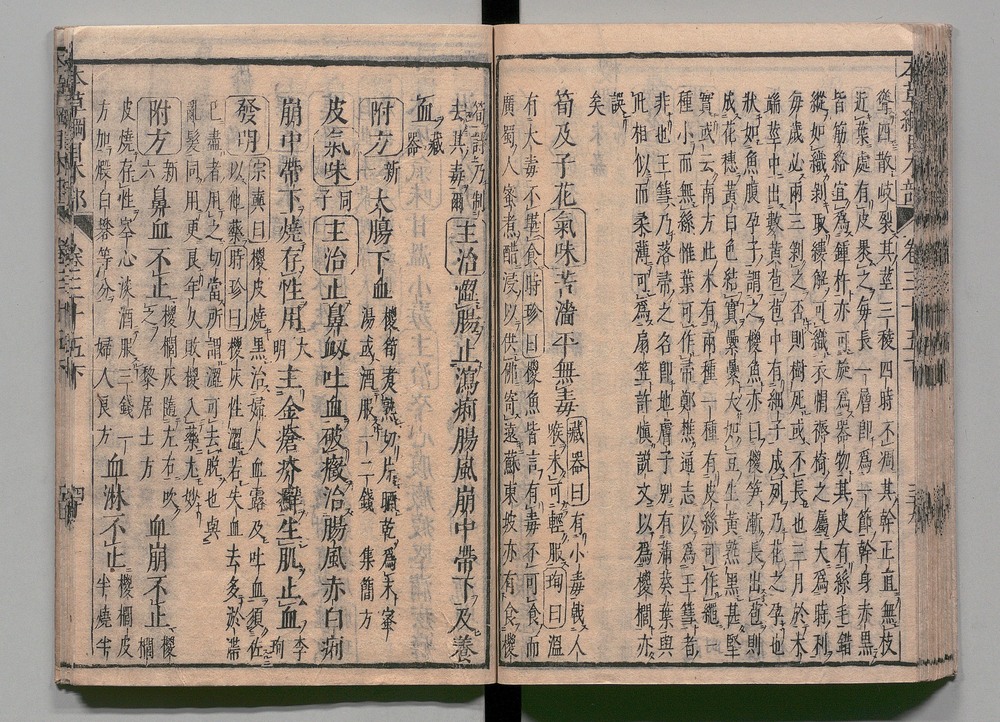 本草綱目木部 卷三十五下
聳四散岐裂其莖三稜四時不凋其幹正直無枝
近葉處有皮裹之每長一層即爲一節幹身赤黑
皆筋絡宜爲鍾杵亦可旋爲器物其皮有絲毛錯
縱如織剥取縷解可織衣帽褥椅之屬大爲時利
每歲必兩三剥之否則樹死或不長也三月於木
端莖中出數黃苞苞中有細子成列乃花之孕也
狀如魚腹孕子謂之椶魚亦曰椶笋漸長出苞則
成花穗黃白色結實纍纍大如豆生黃熟黑甚堅
實或云南方此木有兩種一種有皮絲可作繩一
種小而無絲惟葉可作帚鄭樵通志以爲王篲者
非也王篲乃落帚之名即地膚子別有蒲葵葉與
此相似而柔薄可爲扇笠許慎說文以爲椶櫚亦
誤
矣
筍及子花氣味苦濇平無毒藏器曰有小毒戟人
喉未可輕服珣曰溫
有大毒不堪食時珍曰椶魚皆言有毒不可食而
廣蜀人蜜煮醋浸以供佛寄遠蘇東坡亦有食椶
筍詩乃制
去其毒爾
主治澀腸止瀉痢腸風崩中帶下及養
血藏器
附方新一大腸下血椶筍煮熟切片晒乾爲末蜜
湯或酒服一二錢集簡方
皮氣味同子主治止鼻衄吐血破癥治腸風赤白痢
崩中帶下燒存性用大明主金瘡疥癬生肌止血李珣
發明宗奭曰椶皮燒黑治婦人血露及吐血須佐
以他藥時珍曰椶灰性澀若失血去多瘀滯
已盡者用之切當所謂澀可去脫也與
亂髮同用更良年久敗椶入藥尤妙
附方新六鼻血不止椶櫚灰隨左右吹
之黎居士方血崩不止椶櫚
皮燒存性空心淡酒服三錢一
方加煅白礬等分婦人良方血淋不止椶櫚皮
半燒半
本草綱目木部 卷三十五下